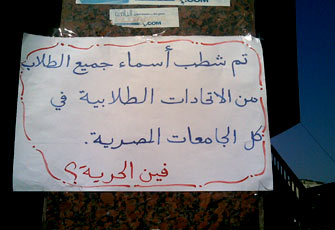 .COM
.COM
تم شطب أسماء جميع الطلاب
من الاتحادات الطلابية في
كل الجامعات المصرية.
فين الحرية؟؟